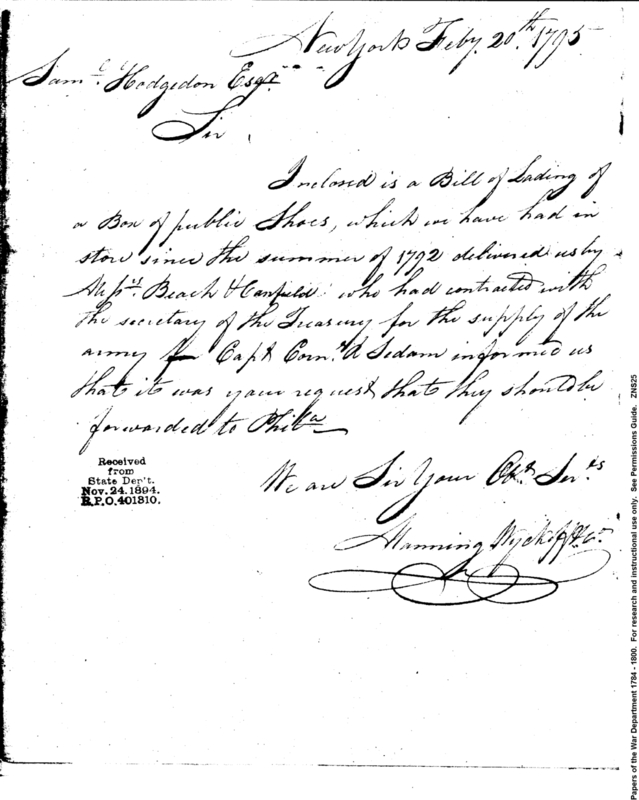 New York Feby. 20th. 1795
Saml. Hodgedon Esqr.
Sir
Inclosed is a Bill of Lading of
a Box of public Shoes, which we have had in
store since the summer of 1792 delivered us by
Beach & Canfield who had contracted with
the secretary of the Treasury for the supply of the
army Capt Corns. R Sedam informed us
that it was your request that they should be
forwarded to Phila
We are Sir Your Obt. Servts
Manning Wyckoff & Co.
Received
from
State Dep't.
Nov. 24. 1894.
R.P.O. 401310.
Papers of the War Department 1784 - 1800. For research and instructional use only. See Permissions Guide. ZNS25